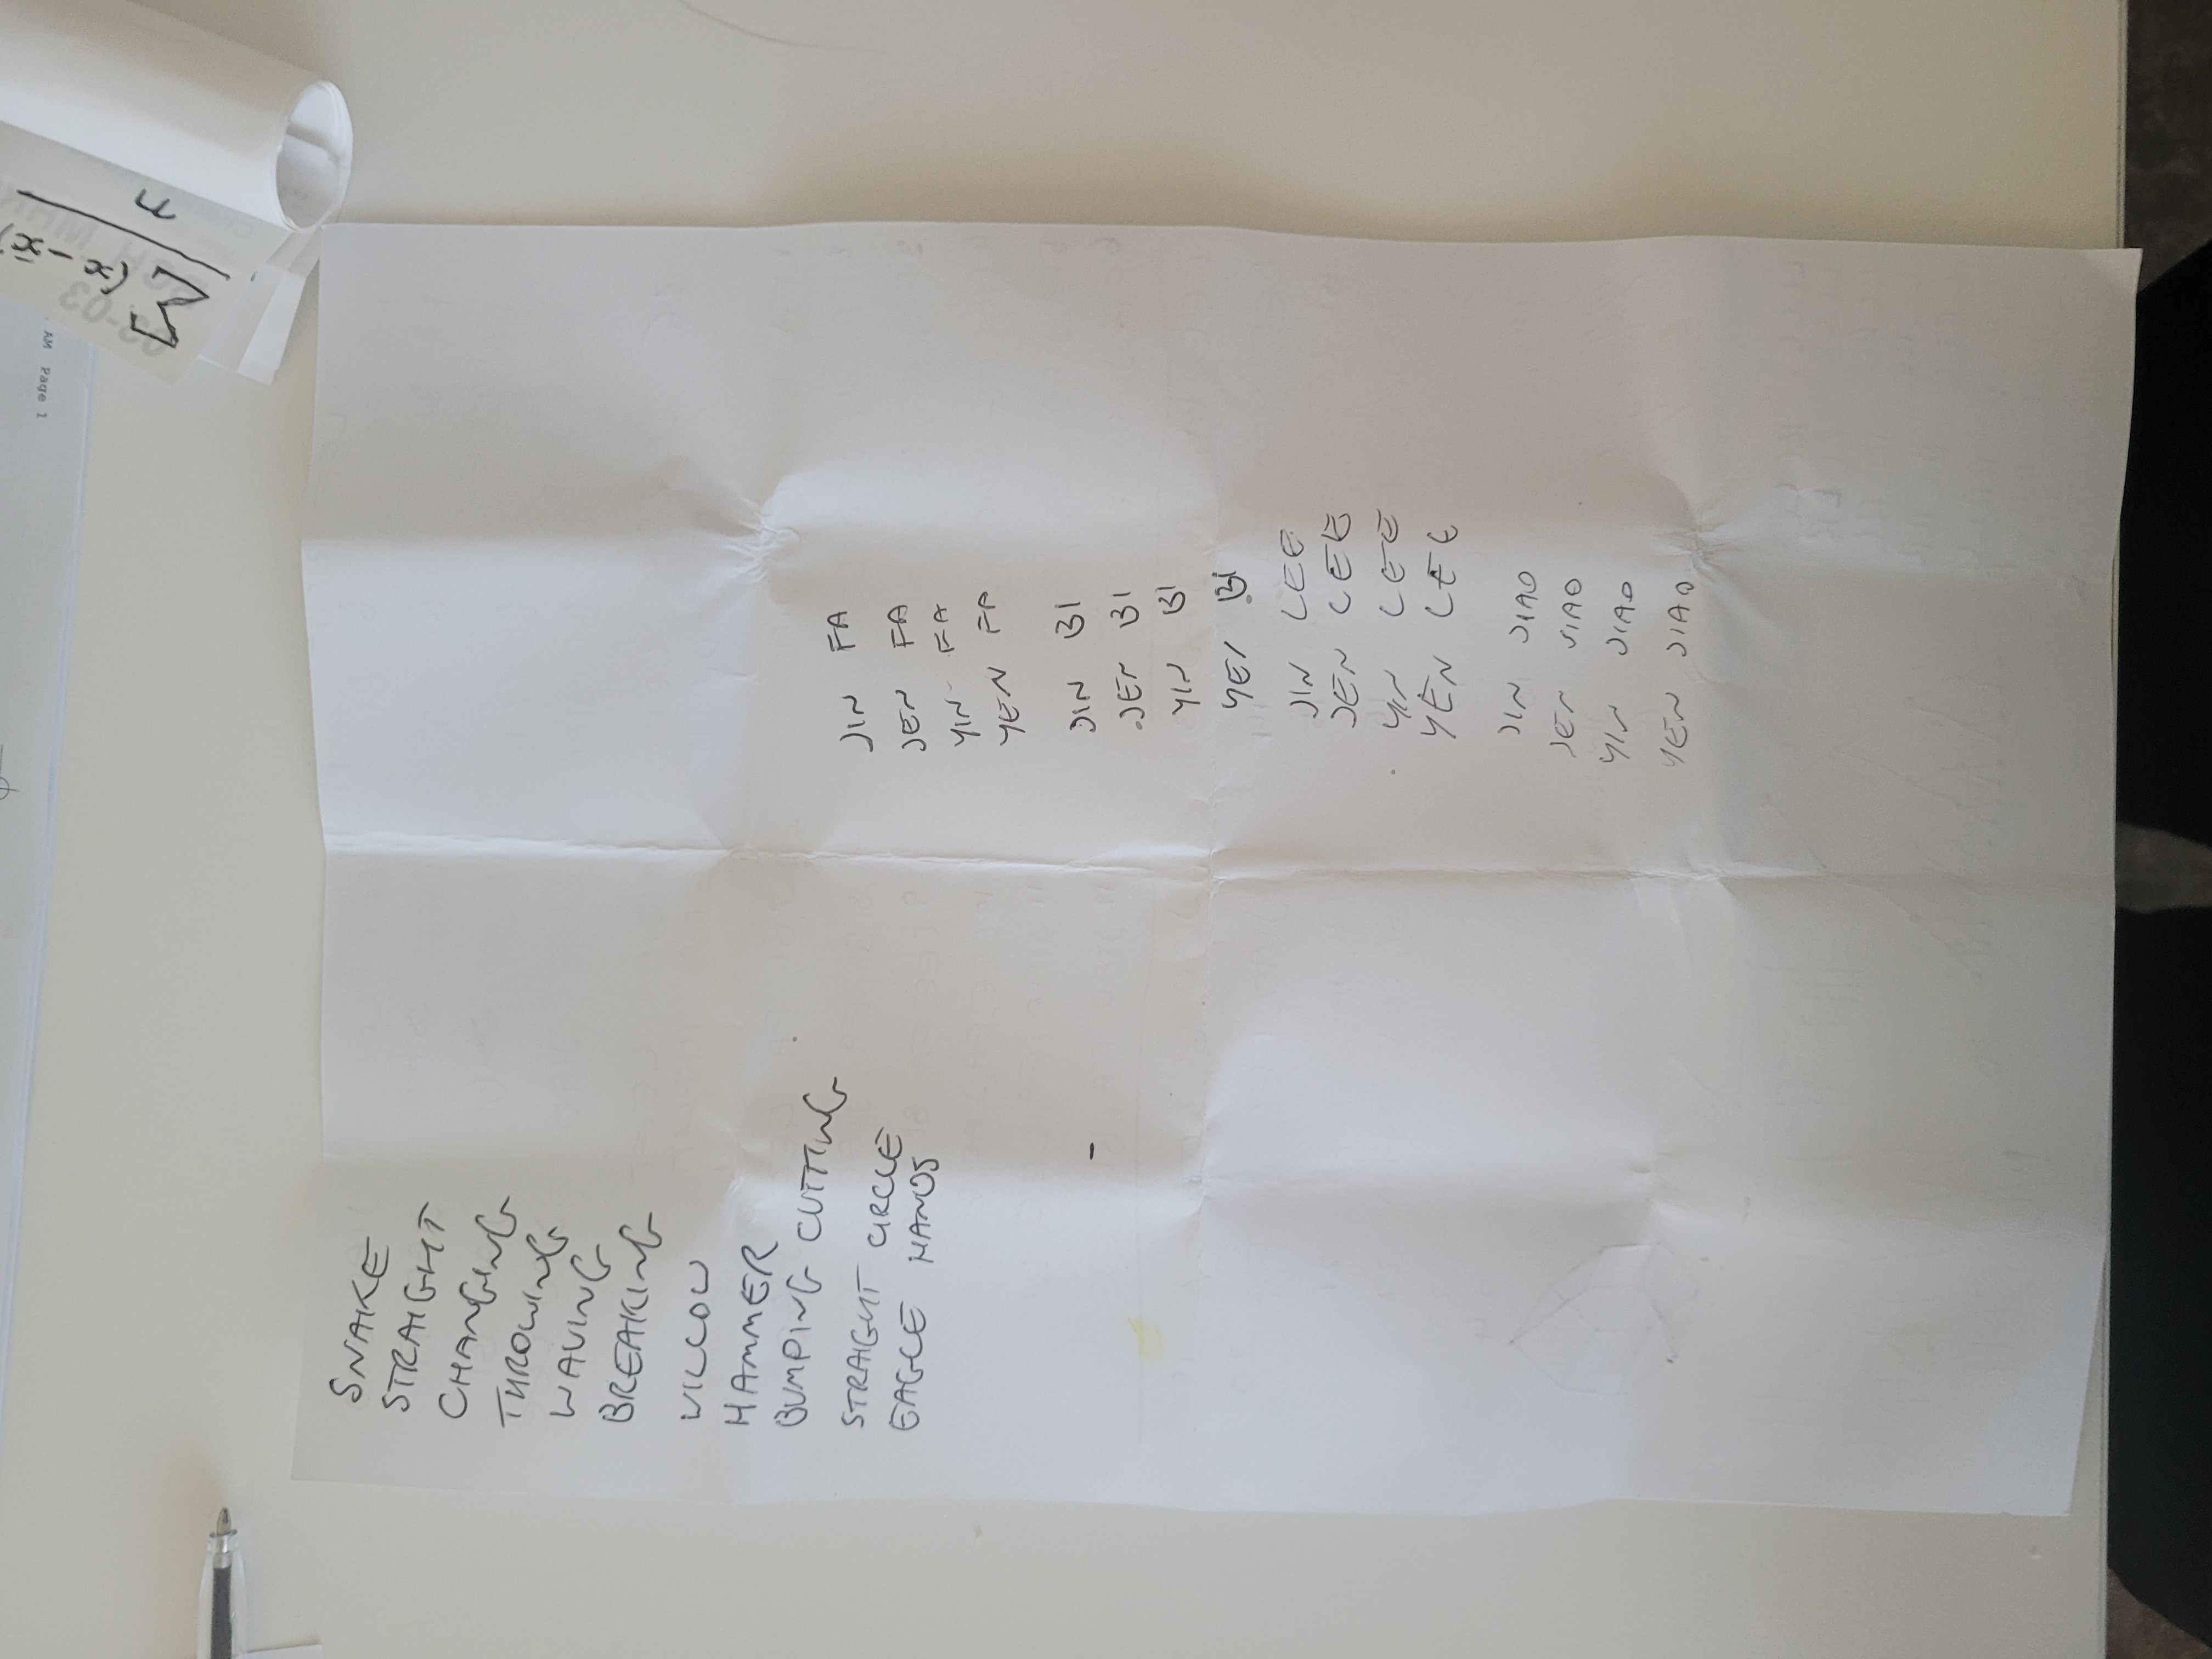 AM Page 1
Σ(x-x̄)
n
SNAKE
STRAIGHT
CHANGING
THROWING
WAVING
BREAKING
WILLOW
HAMMER
BUMPING CUTTING
STRAIGHT CIRCLE
EAGLE HANDS
JIN FA
JEN FA
YIN FA
YEN FA
JIN BI
JEN BI
YIN BI
YEN BI
JIN LEE
JEN LEE
YIN LEE
YEN LEE
JIN JIAO
JEN JIAO
YIN JIAO
YEN JIAO